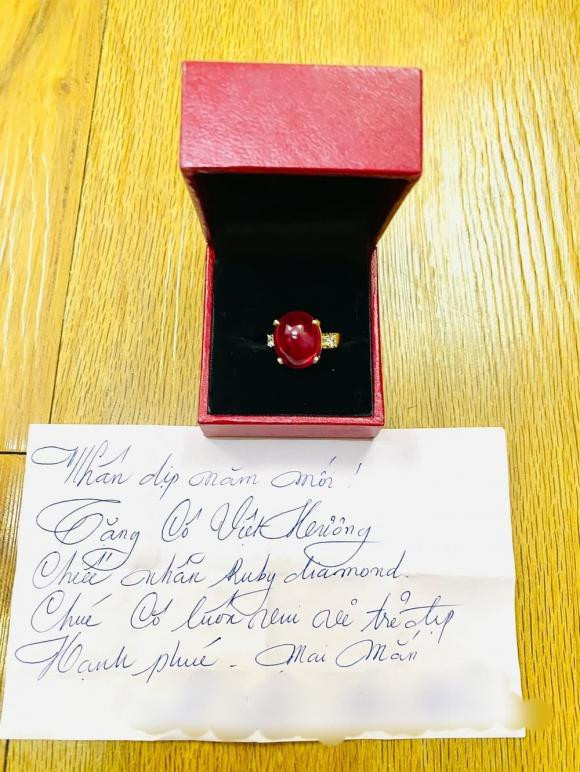 Nhân dịp năm mới!
Tặng Cô Việt Hương
Chiếc nhẫn Ruby diamond.
Chúc Cô luôn vui vẻ trẻ đẹp
Hạnh phúc - Mai Mắn